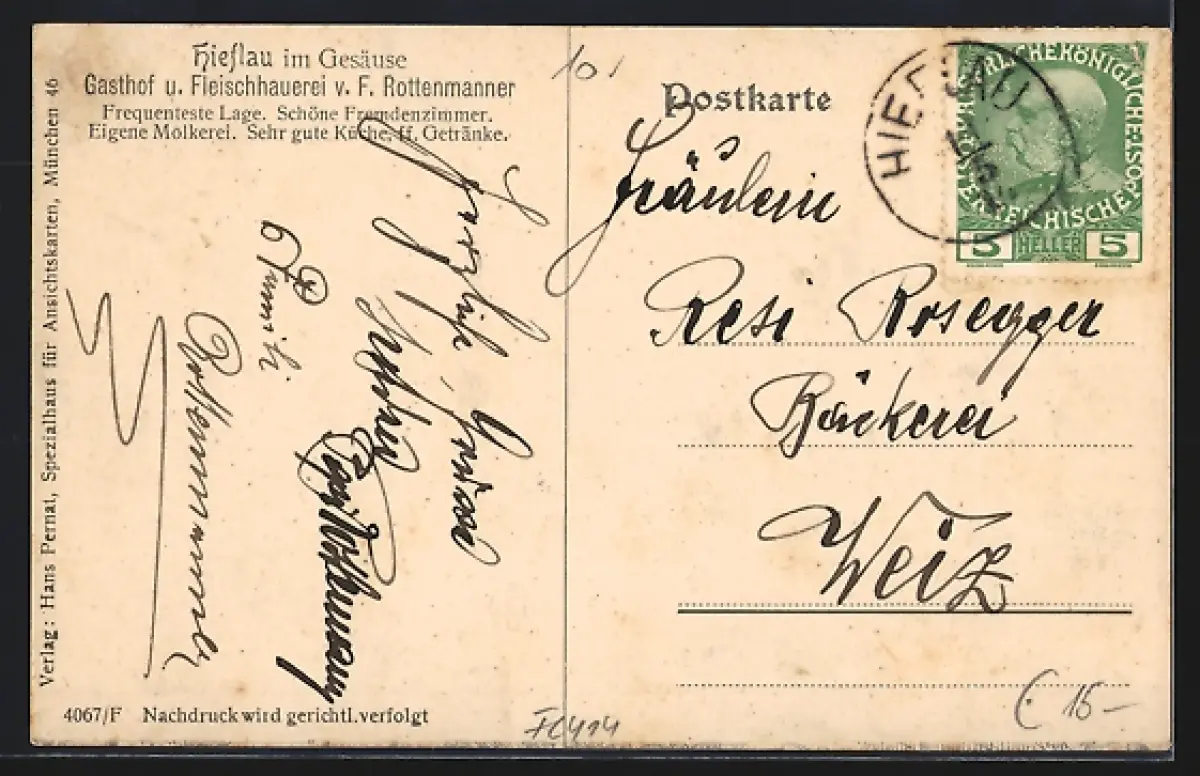 Hieflau im Gesäuse
Gasthof u. Fleischhauerei v. F. Rottenmanner
Frequenteste Lage. Schöne Fremdenzimmer.
Eigene Molkerei. Sehr gute Küche, ff. Getränke.
Herzliche Grüsse
Rottenmanner
Verlag: Hans Pernat, Spezialhaus für Ansichtskarten, München 46
4067/F Nachdruck wird gerichtl. verfolgt
Postkarte
HIEFLAU
KAISERLICHE KÖNIGLICHE ÖSTERREICHISCHE POST
5 HELLER 5
Fräulein
Resi Rosegger
Bäckerei
Weiz
15-